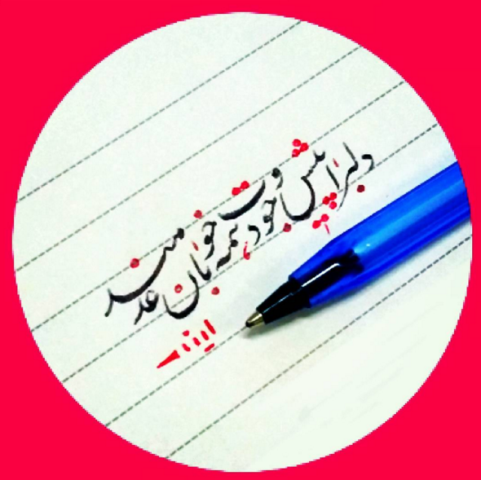 دلبرا پیش وجودت همه خوبان عدمند